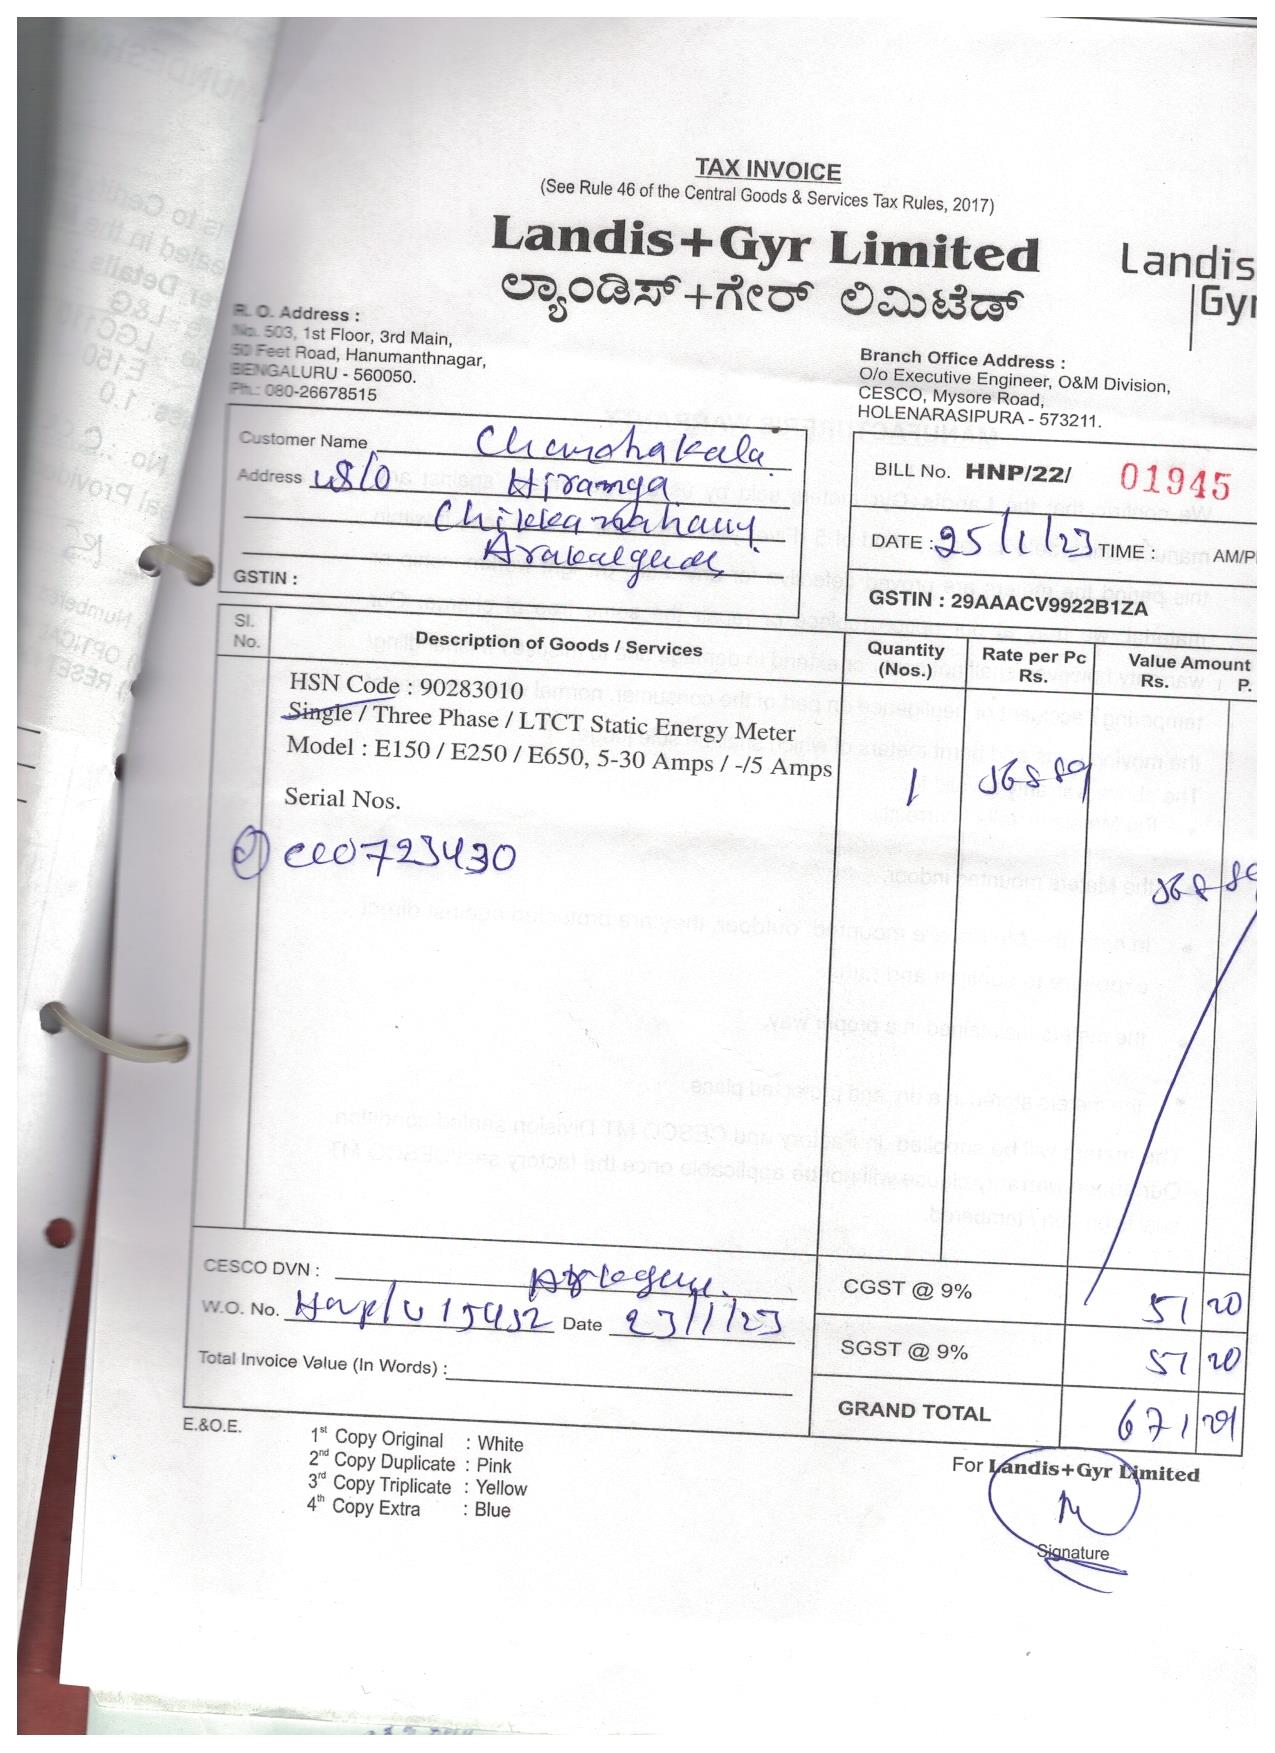 TAX INVOICE
(See Rule 46 of the Central Goods & Services Tax Rules, 2017)
Landis+Gyr Limited
ಲ್ಯಾಂಡಿಸ್+ಗೇರ್ ಲಿಮಿಟೆಡ್
Landis
Gyr
R. O. Address :
No. 503, 1st Floor, 3rd Main,
50 Feet Road, Hanumanthnagar,
BENGALURU - 560050.
Ph.: 080-26678515
Branch Office Address :
O/o Executive Engineer, O&M Division,
CESCO, Mysore Road,
HOLENARASIPURA - 573211.
Customer Name Chandrakala
Address
GSTIN :
BILL No. HNP/22/ 01945
DATE : 25/1/23 TIME : AM/P
GSTIN : 29AAACV9922B1ZA
Sl. No. Description of Goods / Services Quantity (Nos.) Rate per Pc Rs. Value Amount Rs. P.
HSN Code : 90283010
Single / Three Phase / LTCT Static Energy Meter
Model : E150 / E250 / E650, 5-30 Amps / -/5 Amps
1 568 89
Serial Nos.
723430
568 89
CESCO DVN :
W.O. No. Date 23/1/23
Total Invoice Value (In Words) :
CGST @ 9% 51 20
SGST @ 9% 51 20
GRAND TOTAL 671 29
E.&O.E.
1st Copy Original : White
2nd Copy Duplicate : Pink
3rd Copy Triplicate : Yellow
4th Copy Extra : Blue
For Landis+Gyr Limited
Signature